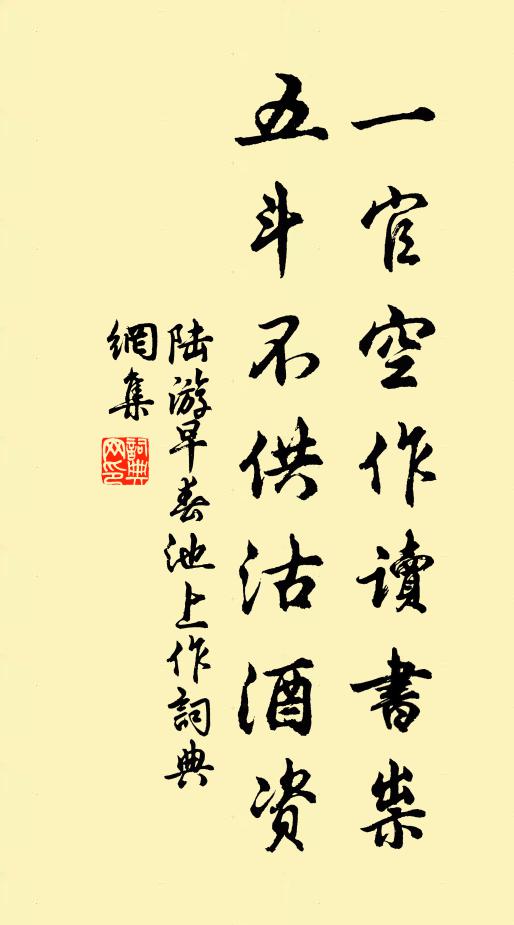 一官空作读書祟
五斗不供沽酒资
陆游早春池上作詞典
網集
詞典
网印